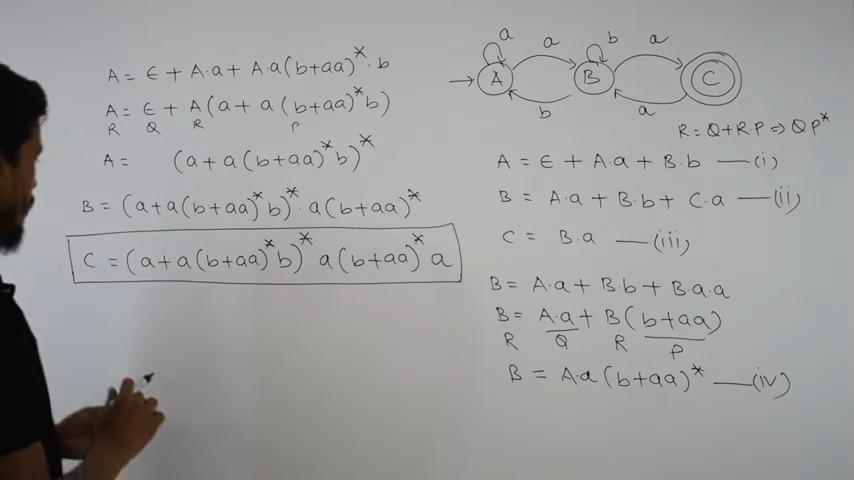 A = ϵ + A.a + A.a(b+aa)* . b
A = ϵ + A(a + a(b+aa)*b)
R Q R P
A = (a+a(b+aa)*b)*
B = (a+a(b+aa)*b)* . a(b+aa)*
C = (a+a(b+aa)*b)* a(b+aa)* a
a a b a
A B C
b a
R = Q+R.P ⇒ QP*
A = ϵ + A.a + B.b —(i)
B = A.a + B.b + C.a —(ii)
C = B.a —(iii)
B = A.a + B.b + B.a.a
B = A.a + B(b+aa)
R Q R P
B = A.a(b+aa)* —(iv)